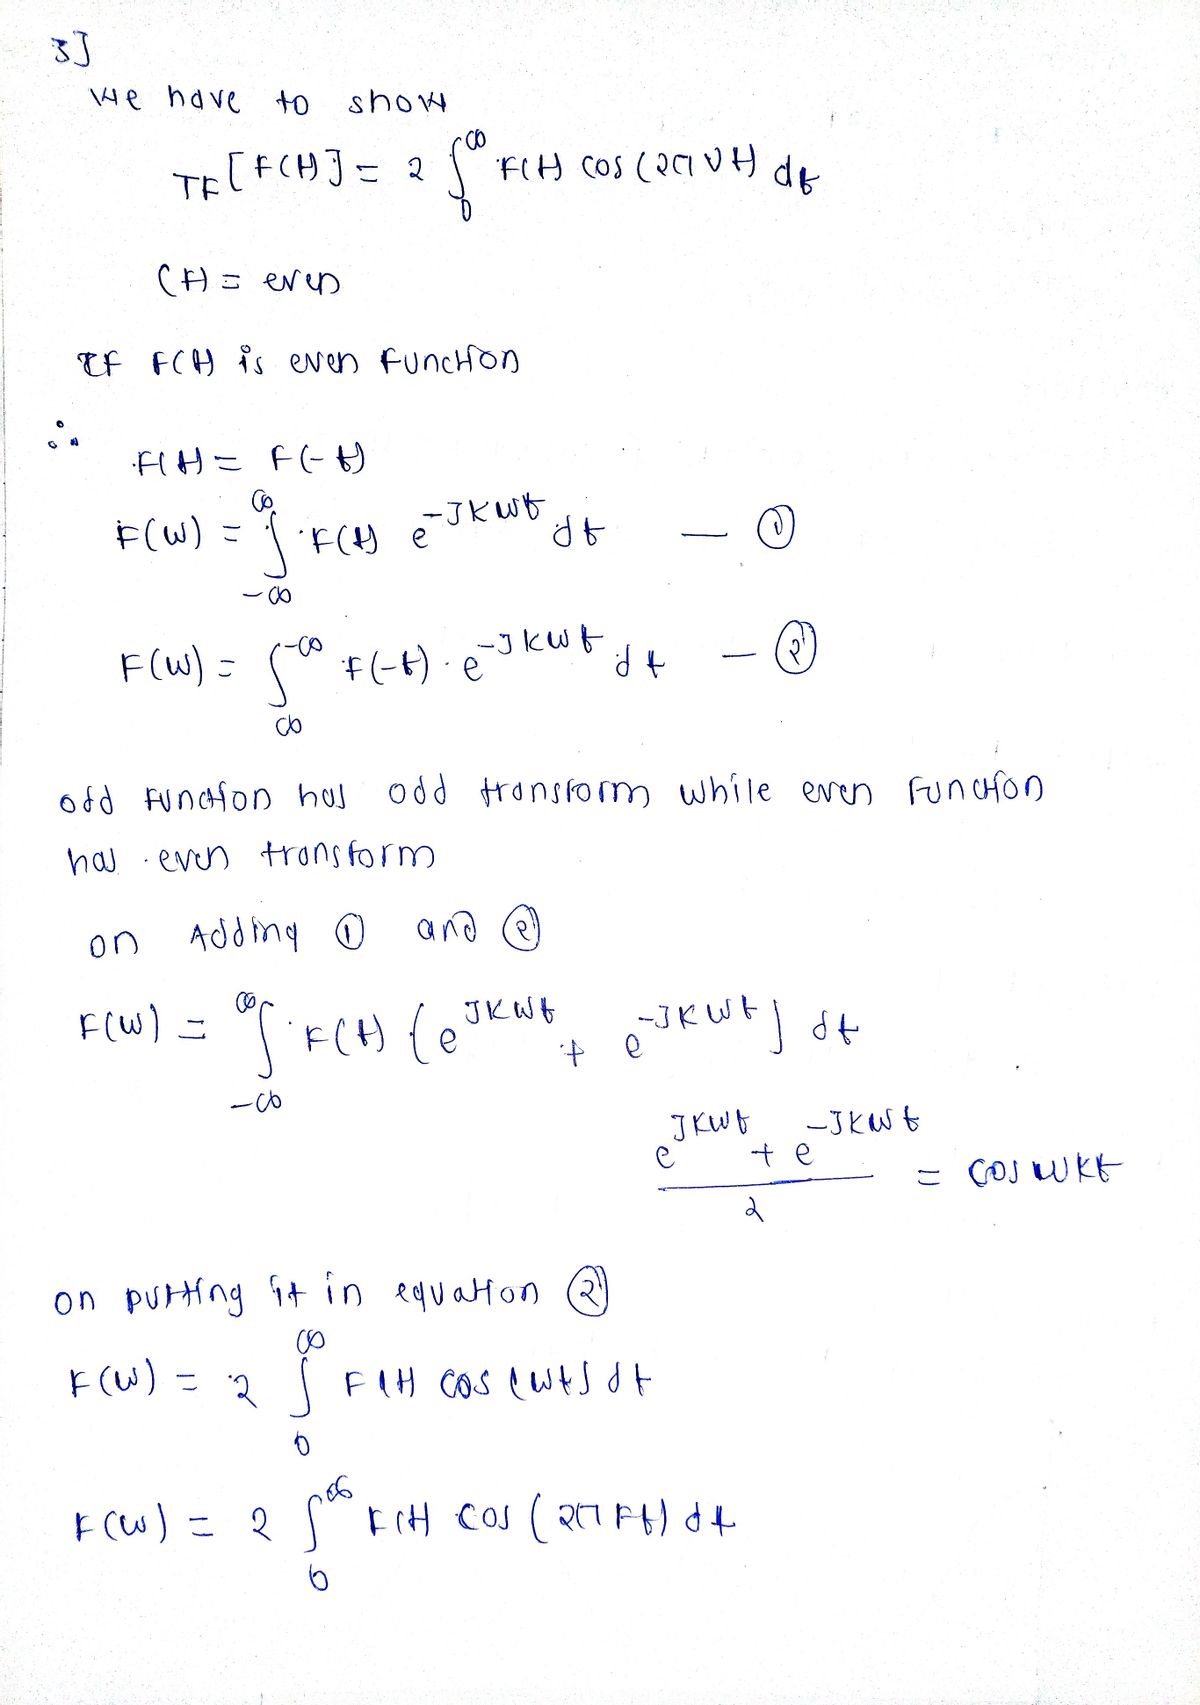 3]
We have to show
TF[F(t)] = 2 ∫₀^∞ F(t) cos(2πνt) dt
(t) = even
IF F(t) is even function
∴ F(t) = F(-t)
F(w) = ∫_{-∞}^{∞} F(t) e^{-JKwt} dt — ①
F(w) = ∫_{∞}^{-∞} F(-t) · e^{-JKwt} dt — ②
odd function has odd transform while even function
has even transform
on Adding ① and ②
F(w) = ∫_{-∞}^{∞} F(t) {e^{JKwt} + e^{-JKwt}] dt
(e^{JKwt} + e^{-JKwt})/2 = cos wkt
on putting it in equation ②
F(w) = 2 ∫₀^∞ F(t) cos(wt) dt
F(w) = 2 ∫₀^∞ F(t) cos(2πFt) dt